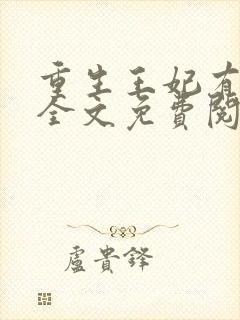 重生王妃有
全文免费閱
盧貴鋒